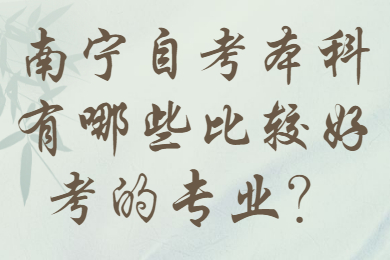 南宁自考本科
有哪些比较好
考的专业?